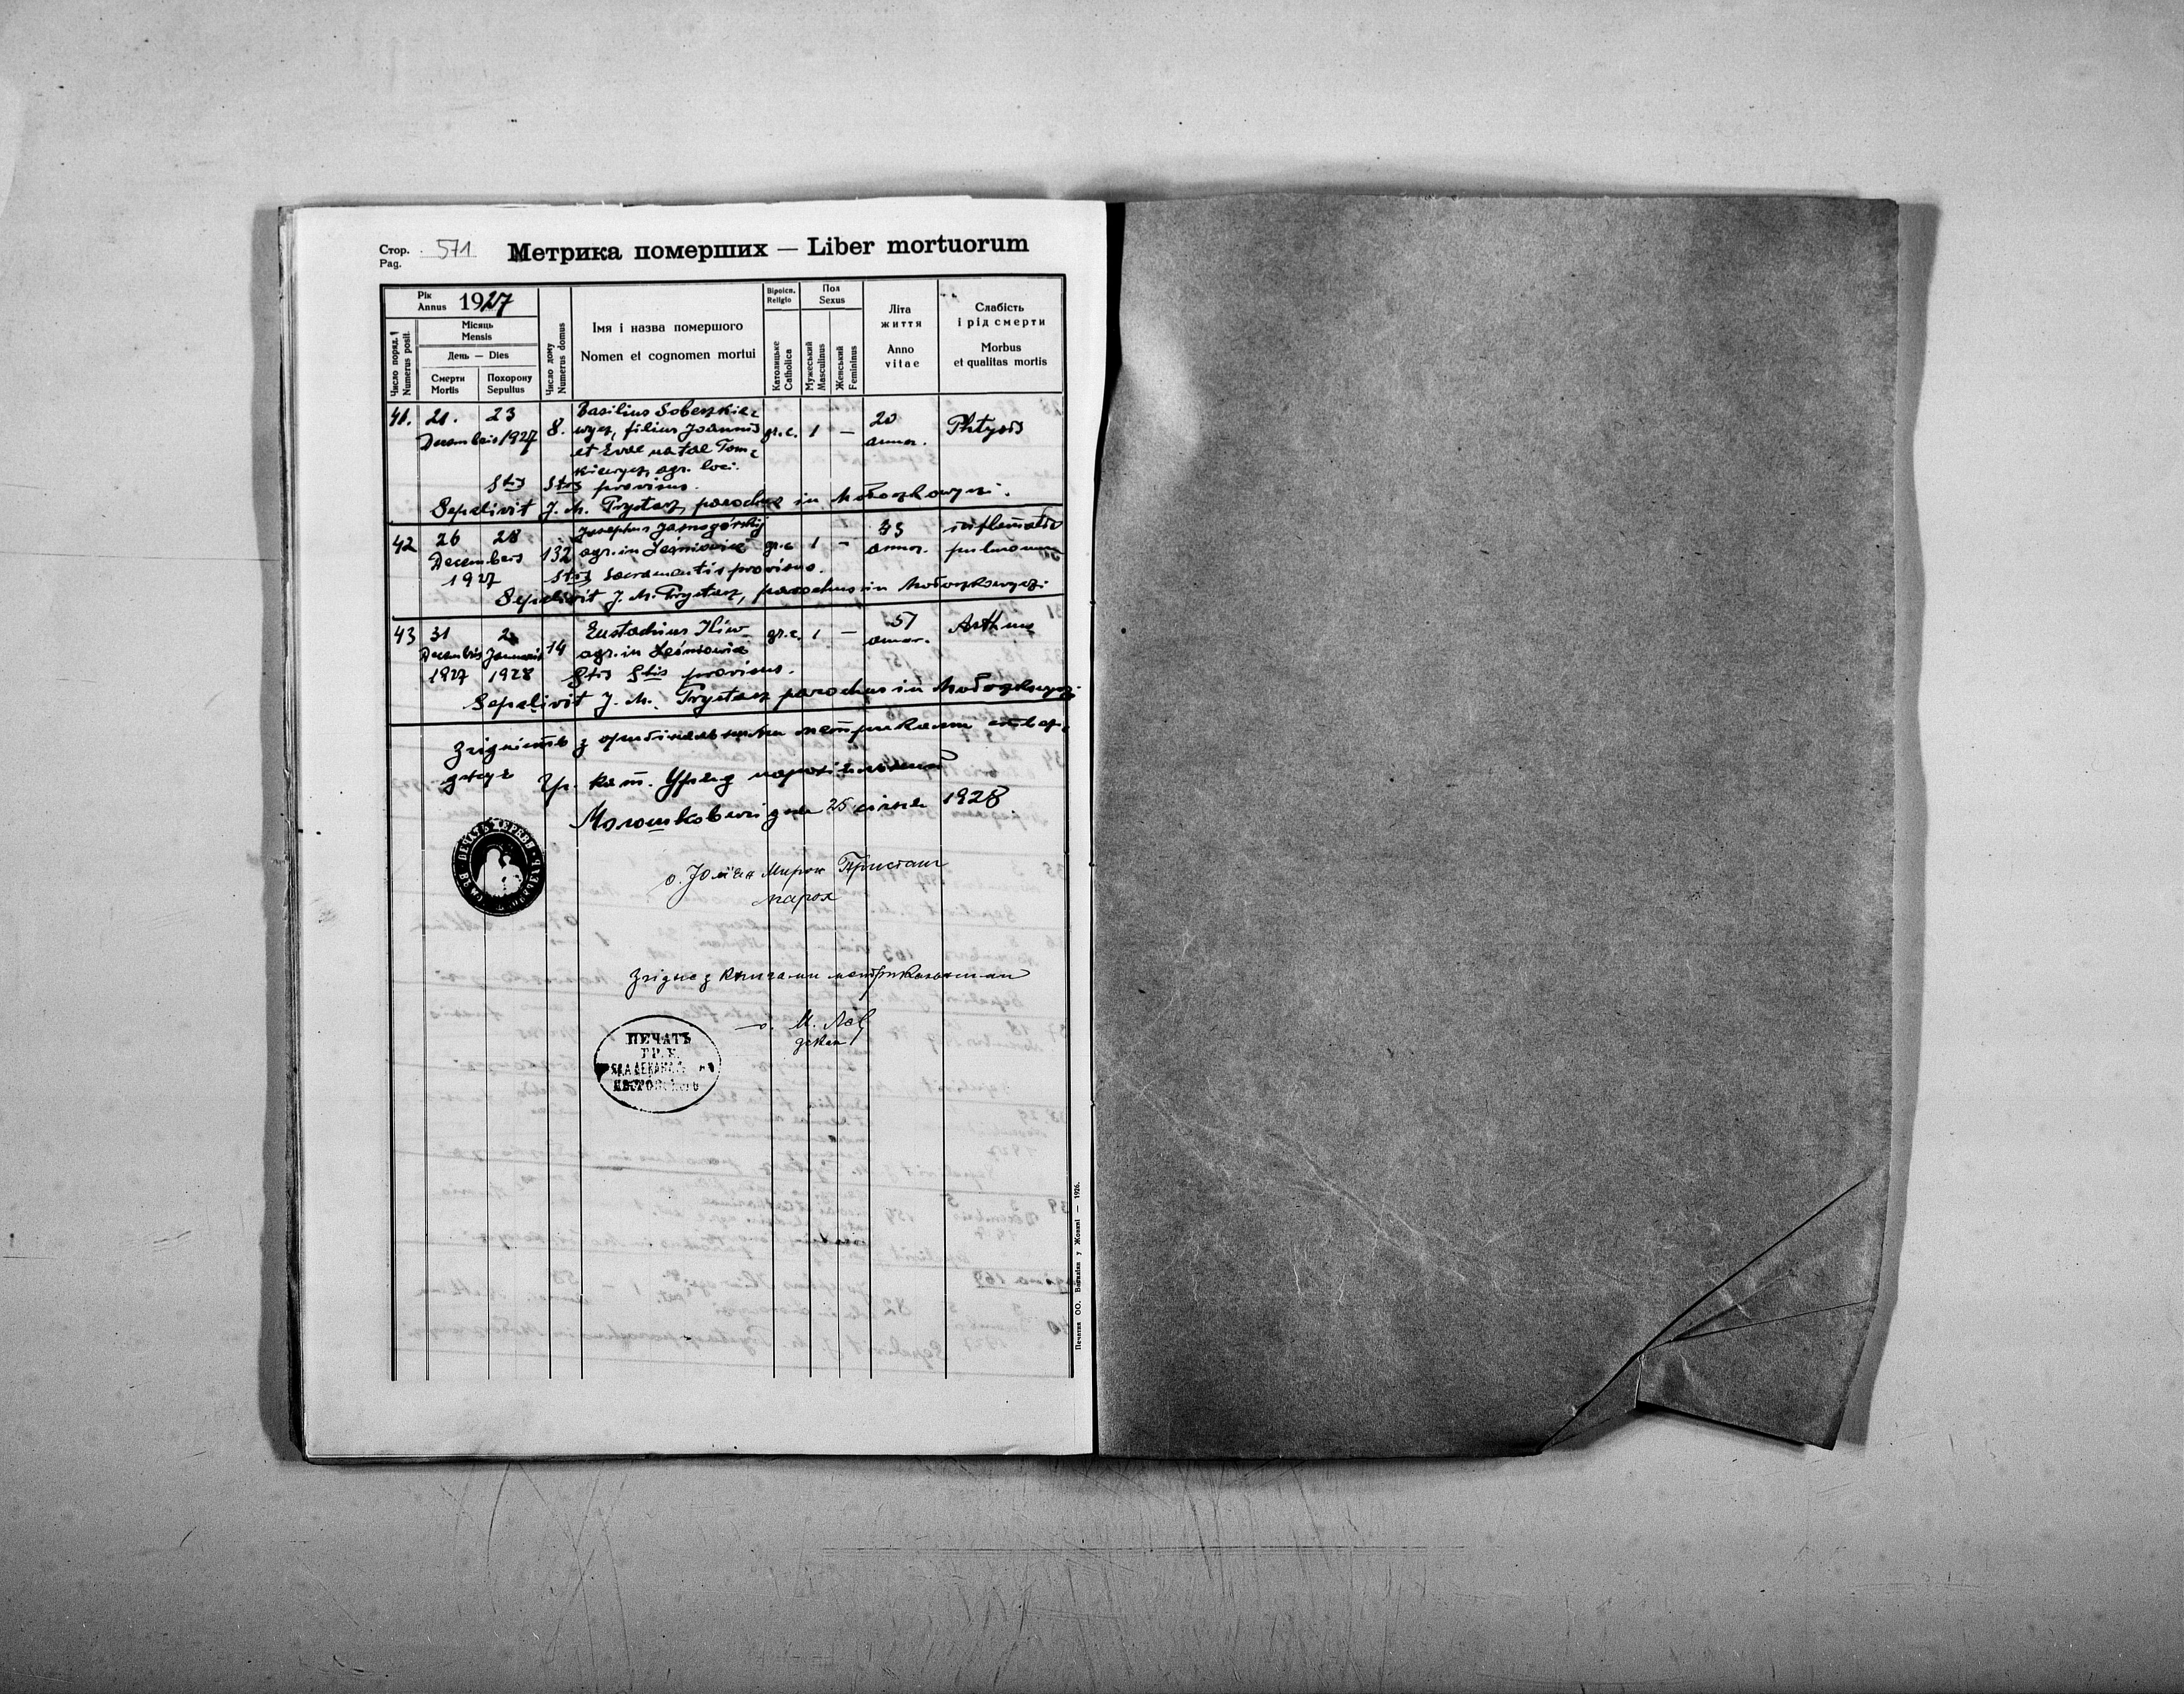 Стор. 571
Pag.
Метрика померших — Liber mortuorum
Рік
Annus 1927
Місяць
Mensis
День — Dies
Смерти
Mortis
Похорону
Sepultus
Число поряд.
Numerus posit.
Число дому
Numerus domus
Імя і назва помершого
Nomen et cognomen mortui
Віроісп.
Religio
Католицьке
Catholica
Пол
Sexus
Мужеський
Masculinus
Женський
Femininus
Літа
життя
Anno
vitae
Слабість
і рід смерти
Morbus
et qualitas mortis
41. 21. 23 8. Basilius Sobeszkie-
Decembris 1927 wycz, filius Joannis gr.c. 1 — 20 annor. Phtysis
et Evae natae Tom-
kiewycz, agr. loci.
Stis Stis provisus.
Sepelivit J. M. Prystasz, parochus in
42 26 28 132 Josephus Jasnogórskij
Decembris agr. in Leśniowice gr.c 1 — annor. pulmonum
1927 Stis Sacramentis provisus.
Sepelivit J. M. Prystasz, parochus in
43 31 2 14 Eustachius Iliw gr.c. 1 — 57 annor. Asthma
Decembris Januarii agr. in Leśniowice
1927 1928 Stis Stis provisus.
Sepelivit J. M. Prystasz parochus in
Згідність з оригінальними метриками ствер-
джує Гр. кат. Уряд парохіяльний
Молошковичі дня 25 січня 1928
о. Юліян Мирон Присташ
парох
Згідне з книгами метрикальними
о. М.
декан
ПЕЧАТЬ
ГР. К.
Печатня ОО. Василіян у Жовкві — 1926.